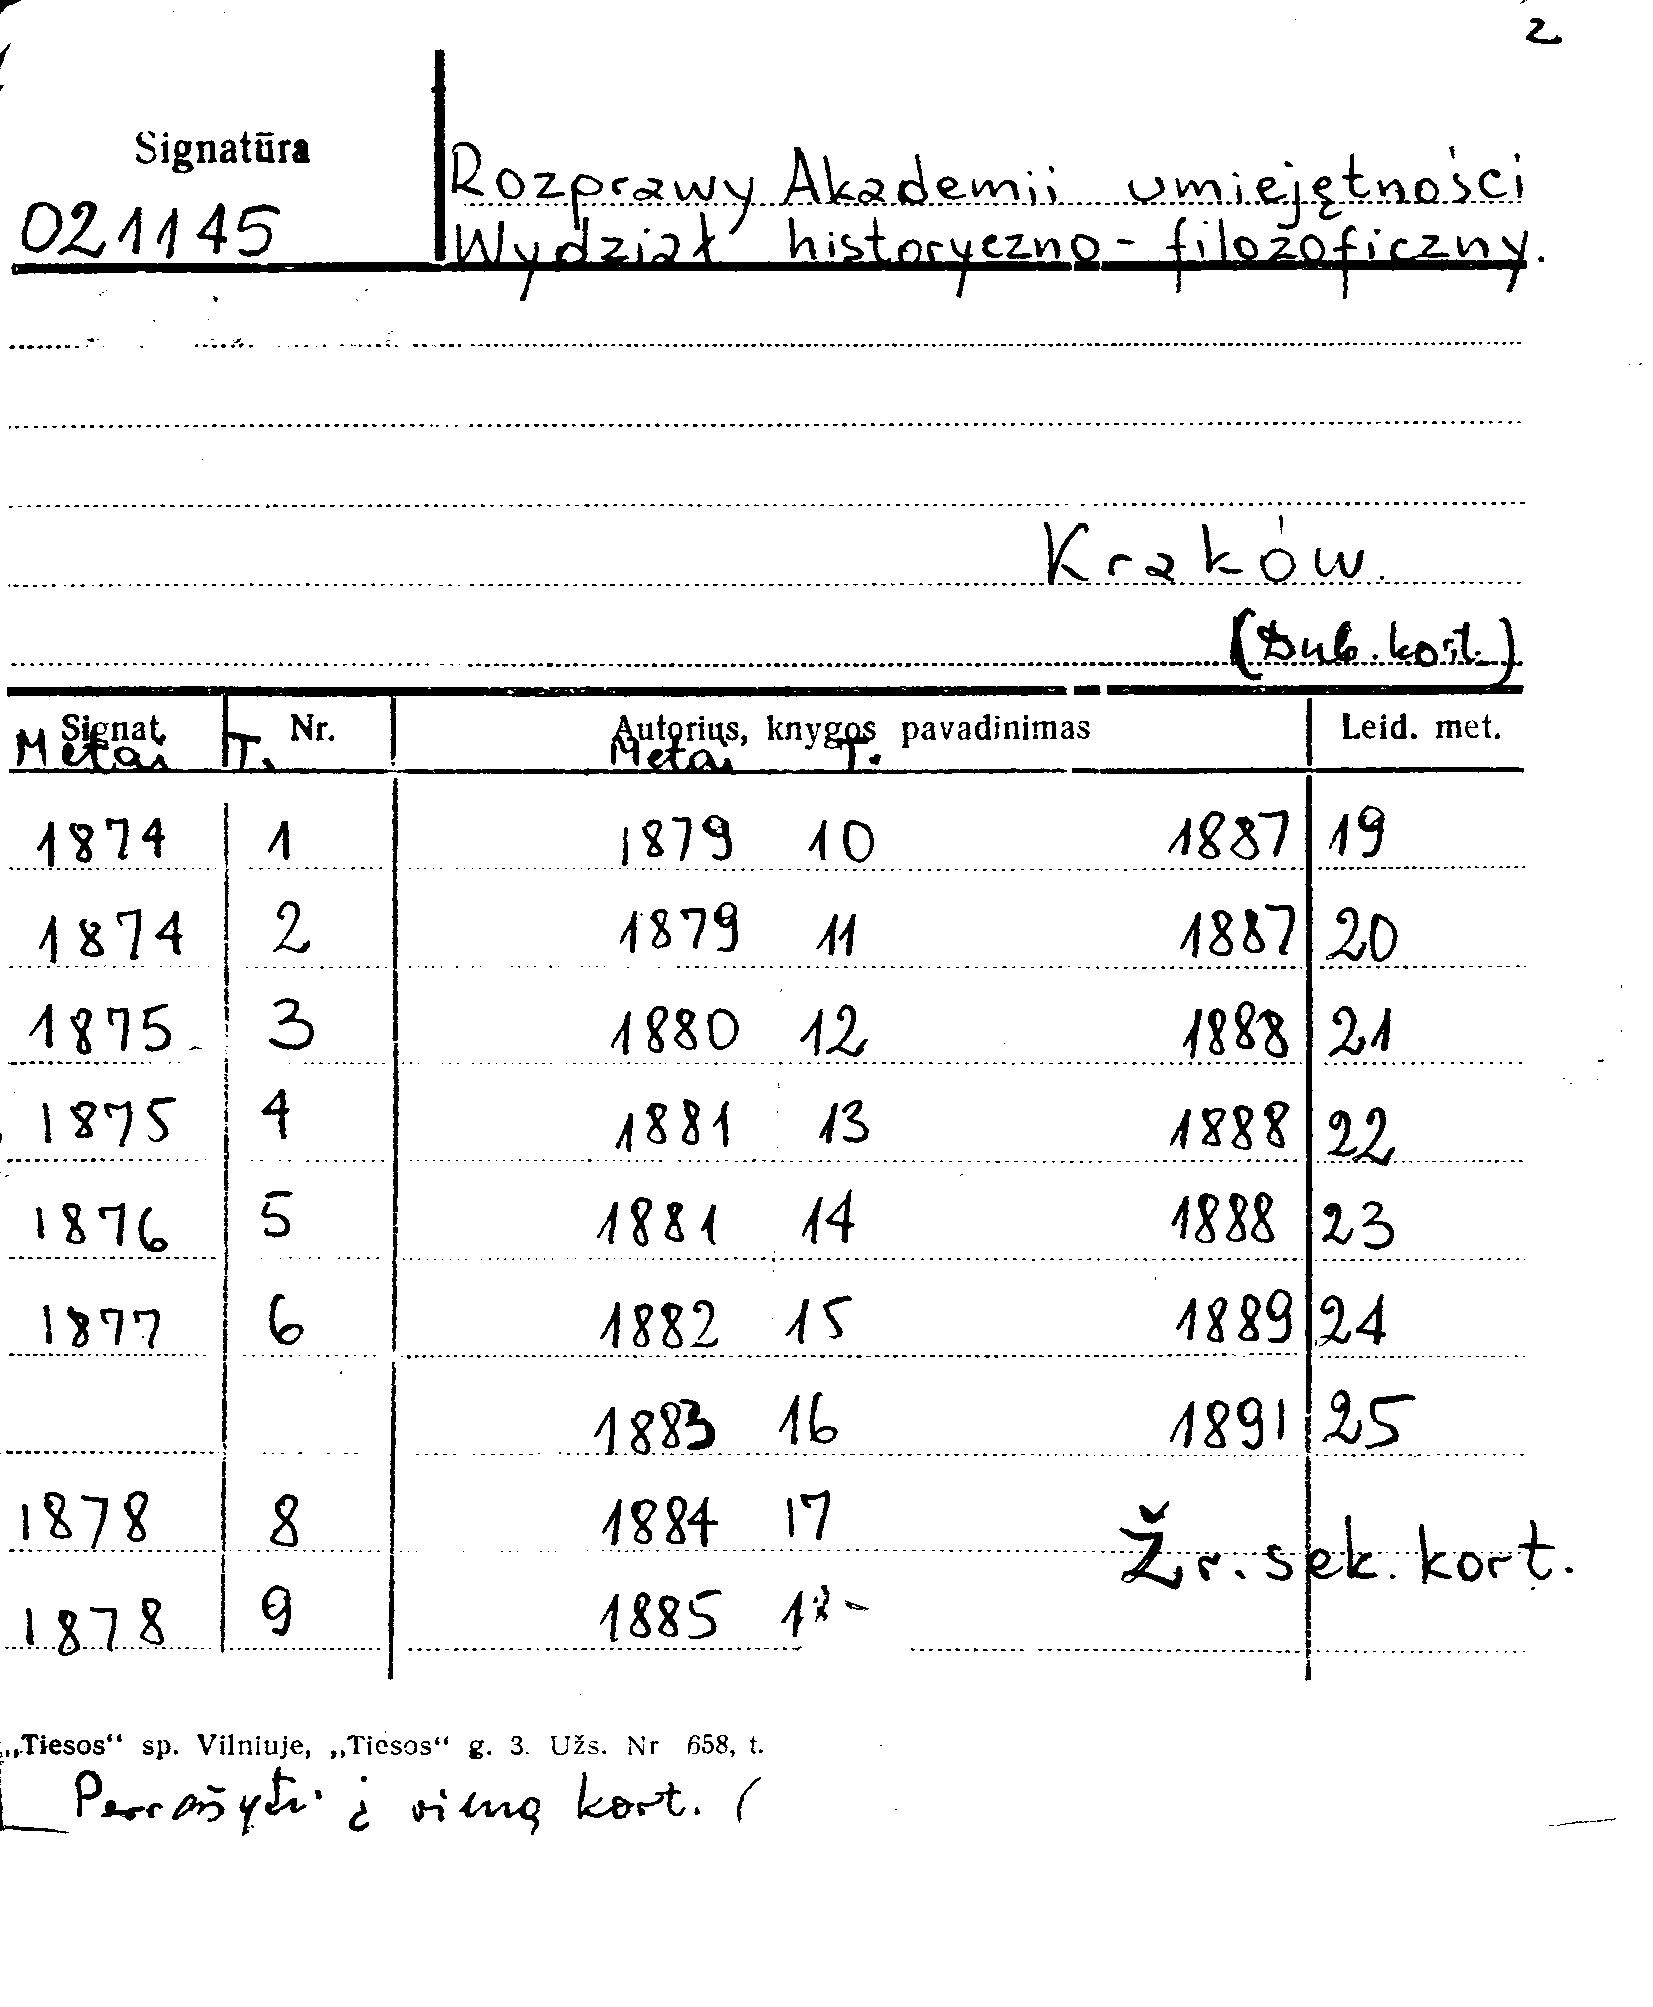 2
Signatūra
021145
Rozprawy Akademii umiejętności
Wydział historyczno-filozoficzny.
Kraków.
(Dub. kort.)
Signat. Nr. Autorius, knygos pavadinimas Leid. met.
Metai T. Metai T.
1874 1 1879 10 1887 19
1874 2 1879 11 1887 20
1875 3 1880 12 1888 21
1875 4 1881 13 1888 22
1876 5 1881 14 1888 23
1877 6 1882 15 1889 24
1883 16 1891 25
1878 8 1884 17 Žr. sek. kort.
1878 9 1885
„Tiesos“ sp. Vilniuje, „Tiesos“ g. 3. Užs. Nr 658, t.
Perrašyti į vieną kort. (